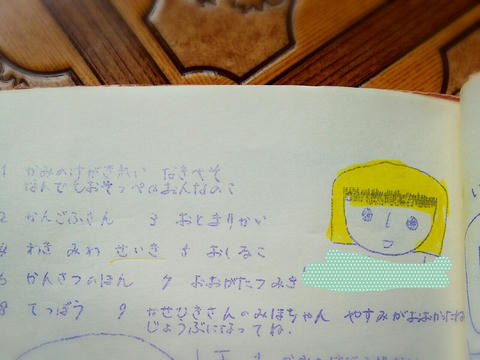 1 かみのけがきれい なきべそ
なんでもおそっぺのおんなのこ
2 かんごふさん 3 おとまりかい
4 わき みわ せいき 5 おしるこ
6 かんさつのほん 7 おおがたつみき
8 てつぼう 9 なせひきさんのみほちゃん やすみがおおかたね
じょうぶになってね.